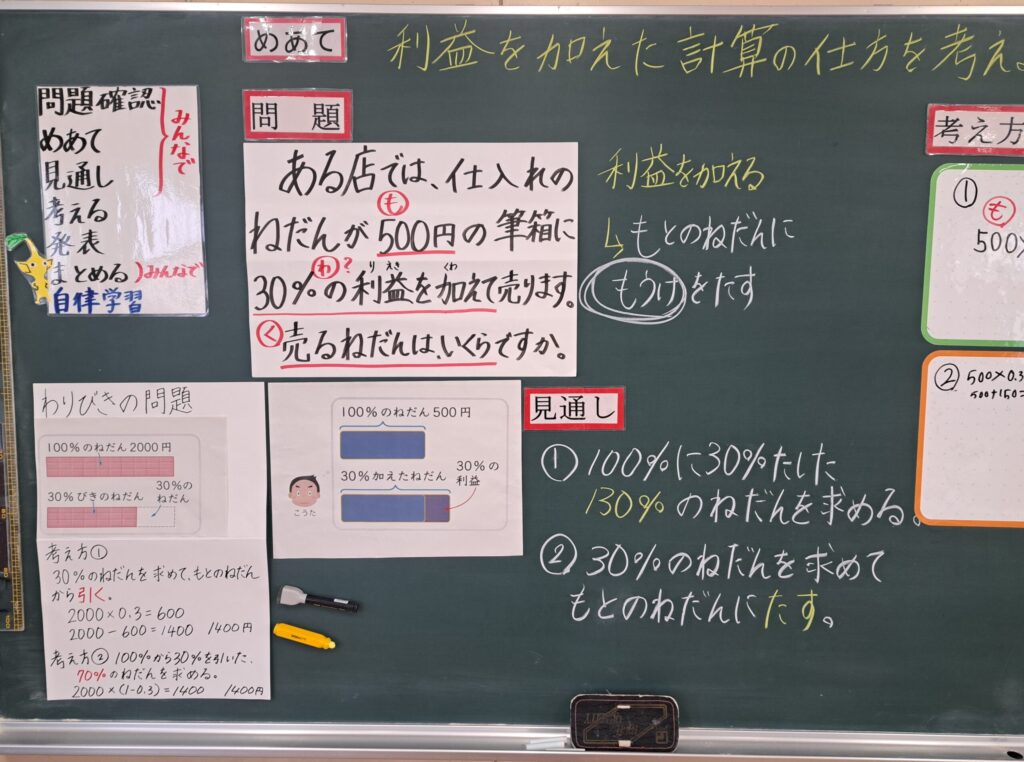 めあて
利益を加えた計算の仕方を考え
問題確認
めあて
見通し
みんなで
考える
発表
まとめる
みんなで
自律学習
問題
ある店では、仕入れの
も
ねだんが500円の筆箱に
わ?
りえき
くわ
30%の利益を加えて売ります。
く
売るねだんは、いくらですか。
利益を加える
↳もとのねだんに
もうけをたす
考え方
①
も
500
② 500×0.3
500+150=
わりびきの問題
100%のねだん2000円
30%びきのねだん
30%の
ねだん
考え方①
30%のねだんを求めて、もとのねだん
から引く。
2000×0.3=600
2000-600=1400 1400円
考え方② 100%から30%を引いた、
70%のねだんを求める。
2000×(1-0.3)=1400 1400円
100%のねだん500円
30%加えたねだん
30%の
利益
こうた
見通し
①100%に30%たした
130%のねだんを求める。
②30%のねだんを求めて
もとのねだんにたす。